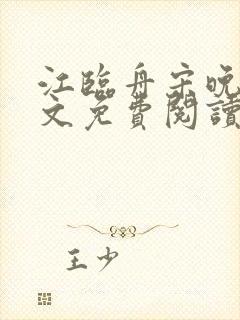 江臨舟宋晚
文免費閱讀
王少